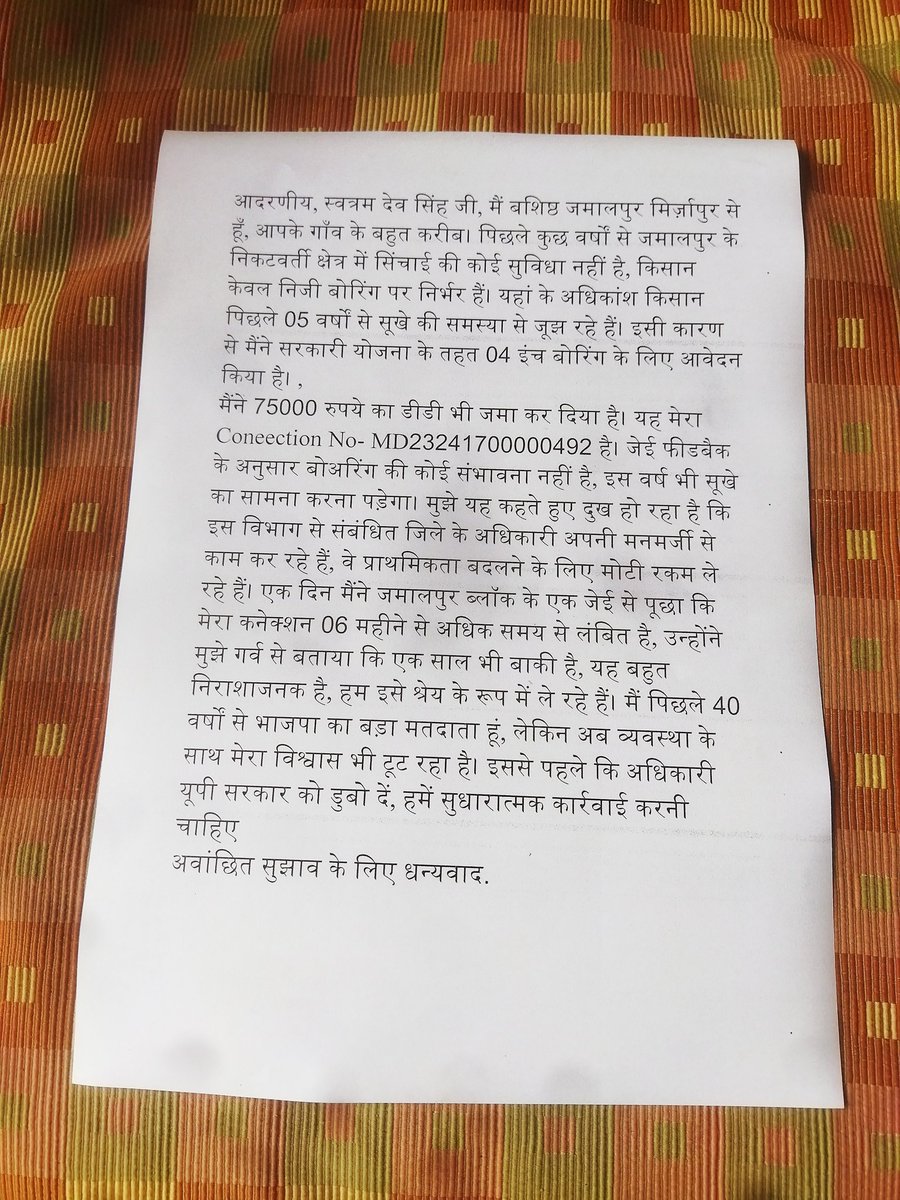 आदरणीय, स्वत्रम देव सिंह जी, मैं बशिष्ठ जमालपुर मिर्ज़ापुर से
हूँ, आपके गाँव के बहुत करीब। पिछले कुछ वर्षों से जमालपुर के
निकटवर्ती क्षेत्र में सिंचाई की कोई सुविधा नहीं है, किसान
केवल निजी बोरिंग पर निर्भर हैं। यहां के अधिकांश किसान
पिछले 05 वर्षों से सूखे की समस्या से जूझ रहे हैं। इसी कारण
से मैंने सरकारी योजना के तहत 04 इंच बोरिंग के लिए आवेदन
किया है। ,
मैंने 75000 रुपये का डीडी भी जमा कर दिया है। यह मेरा
Coneection No- MD23241700000492 है। जेई फीडबैक
के अनुसार बोअरिंग की कोई संभावना नहीं है, इस वर्ष भी सूखे
का सामना करना पड़ेगा। मुझे यह कहते हुए दुख हो रहा है कि
इस विभाग से संबंधित जिले के अधिकारी अपनी मनमर्जी से
काम कर रहे हैं, वे प्राथमिकता बदलने के लिए मोटी रकम ले
रहे हैं। एक दिन मैंने जमालपुर ब्लॉक के एक जेई से पूछा कि
मेरा कनेक्शन 06 महीने से अधिक समय से लंबित है, उन्होंने
मुझे गर्व से बताया कि एक साल भी बाकी है, यह बहुत
निराशाजनक है, हम इसे श्रेय के रूप में ले रहे हैं। मैं पिछले 40
वर्षों से भाजपा का बड़ा मतदाता हूं, लेकिन अब व्यवस्था के
साथ मेरा विश्वास भी टूट रहा है। इससे पहले कि अधिकारी
यूपी सरकार को डुबो दें, हमें सुधारात्मक कार्रवाई करनी
चाहिए
अवांछित सुझाव के लिए धन्यवाद.